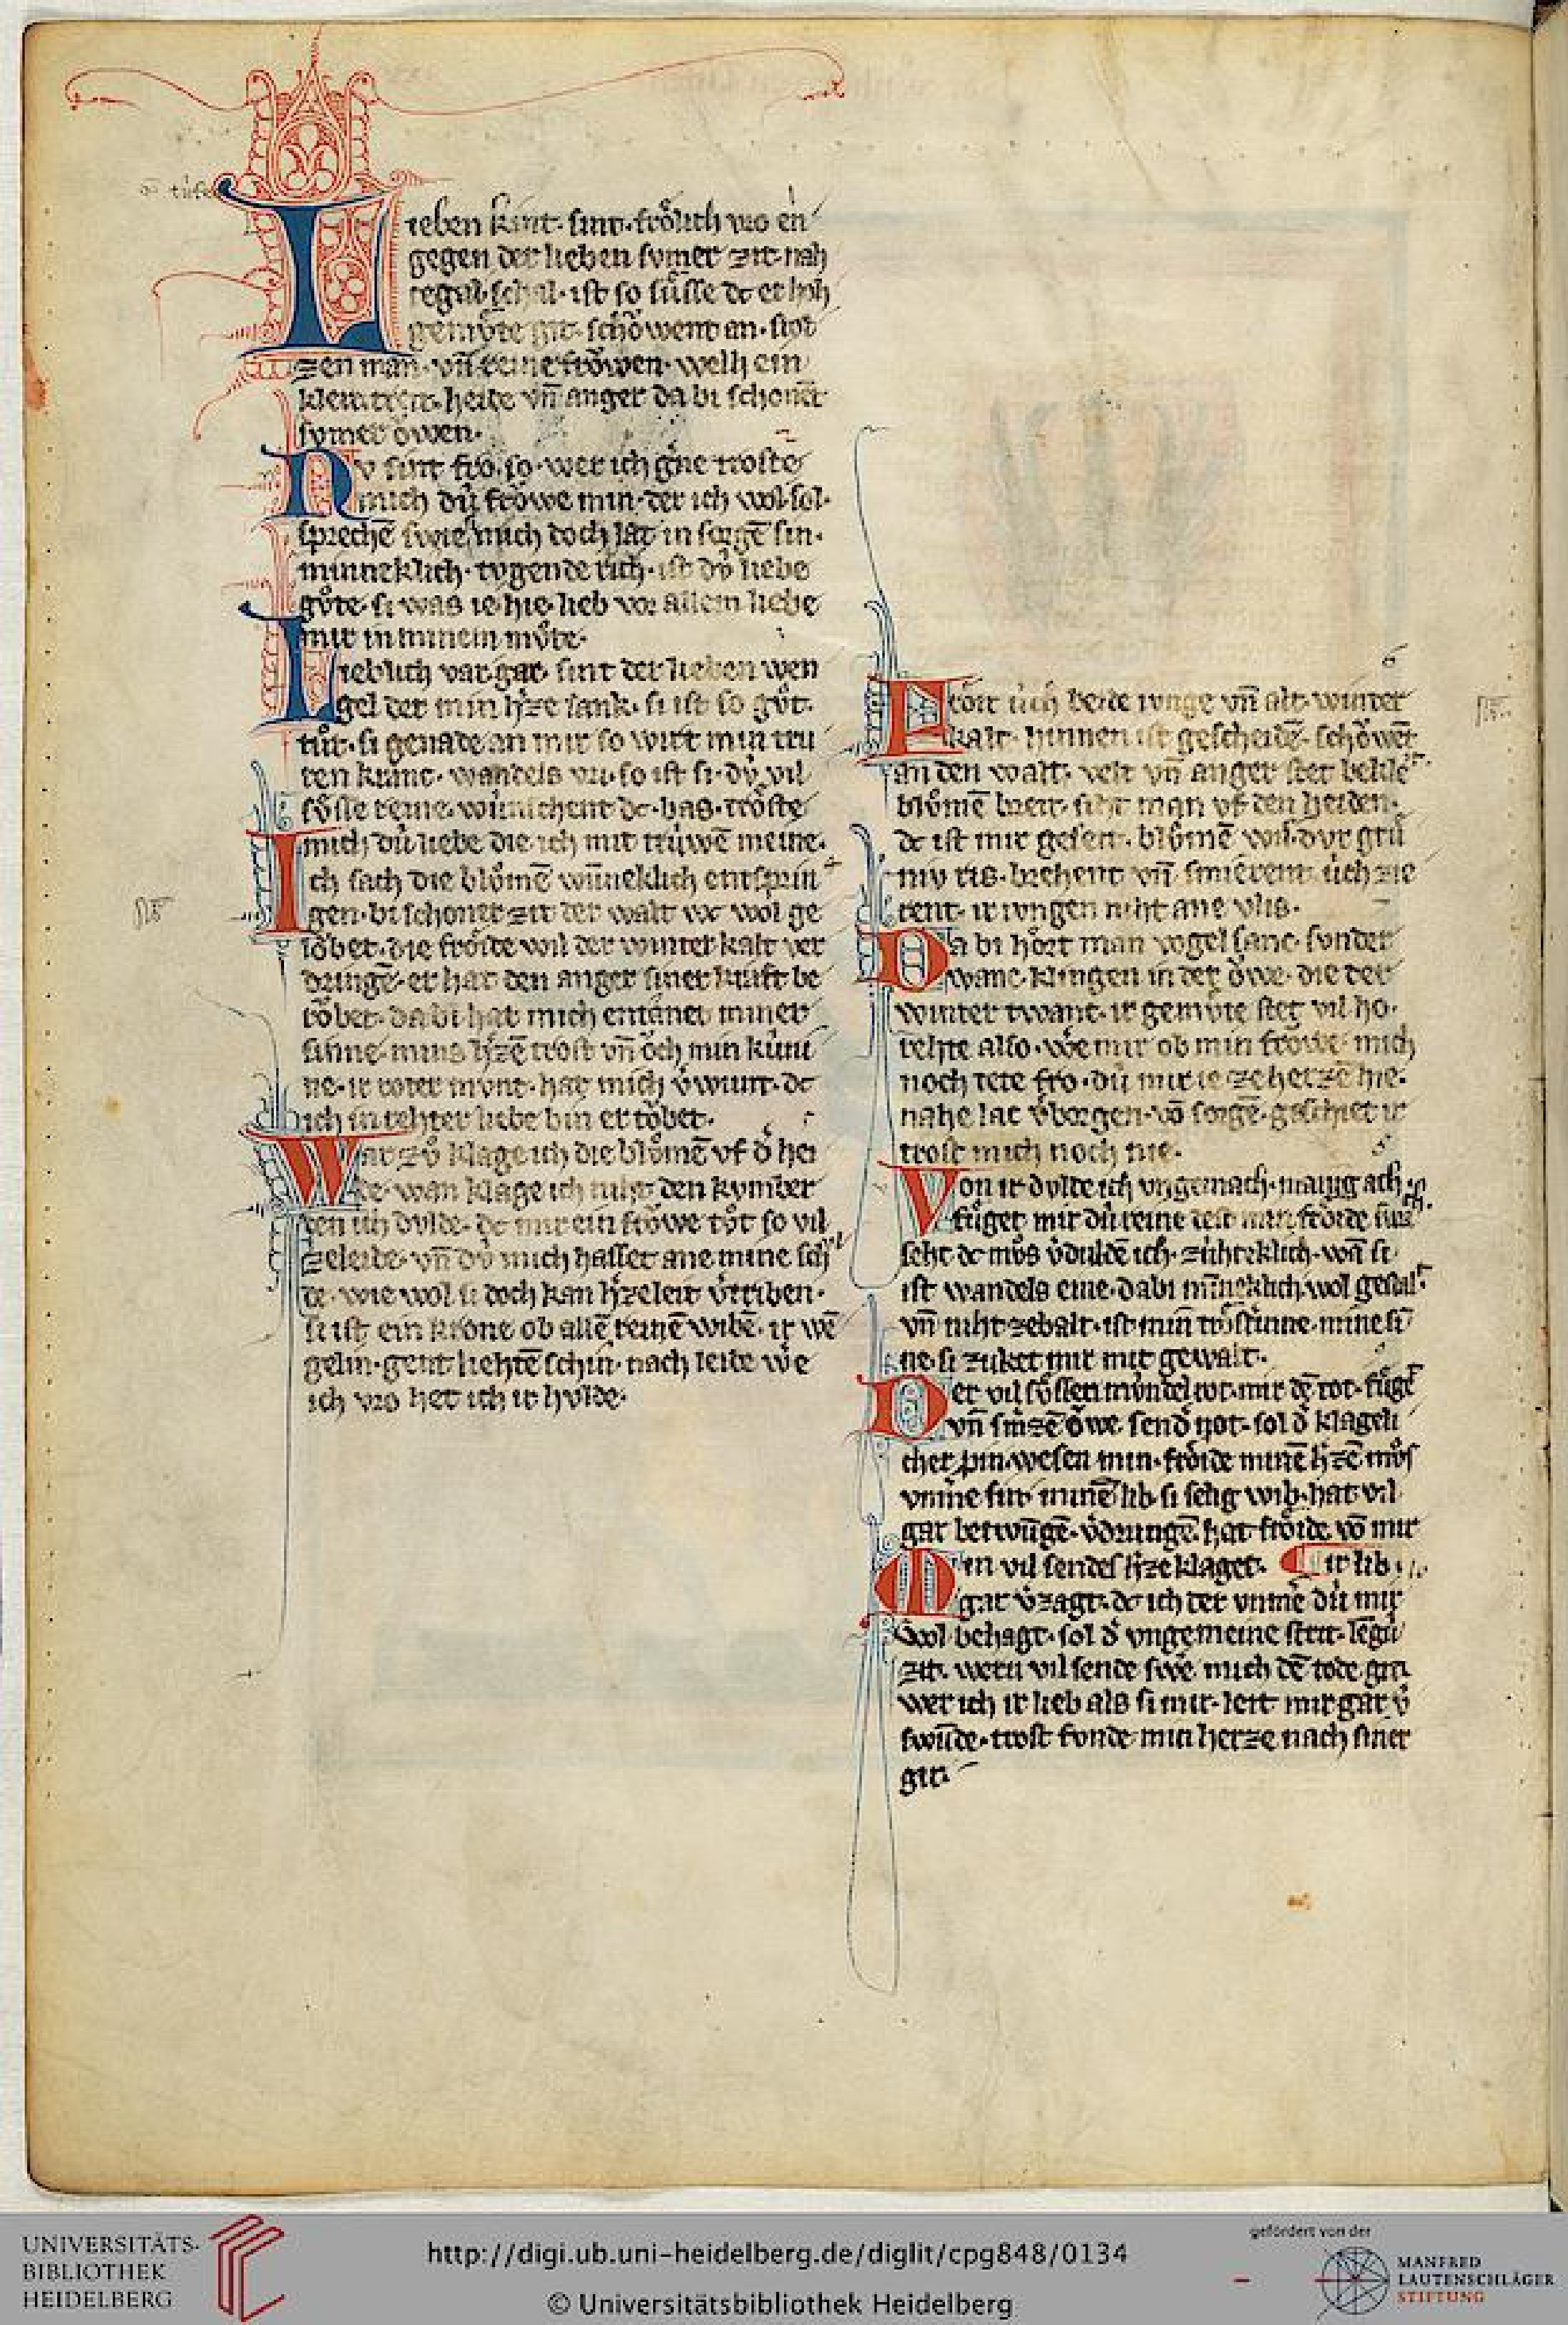 ieben kint· sint· frȯ̈lich vro en
gegen der lieben sumer zit· nah
tegal schal· ist so süsse dc er hoh
gemu̍te git· schȯwent an· stol
zen man· vn̄ reine frȯwen· welh ein
kleit treit· heide vn̄ anger da bi schoner
sumer ȯwen·
Nv sint fro· so wer ich g'ne troste
mich dü frȯwe min· der ich wol sol·
sprechē swie mich doch lat in sorgē sin·
minneklich· tvgende rich· ist dü liebe
gůte· si was ie hie· lieb vor allem liebe
mir in minem mu̍te·
Lieblich var gar· sint der lieben wen
gel der min h'ze sank· si ist so gůt·
tůt· si genade an mir so wirt min tru
ren krank· wandels vri· so ist si· dü vil
sůsse reine· wünschent dc· das· trȯste
mich dü liebe die ich mit trüwē meine·
Ich sach die blůmē wn̄neklich entsprin
gen· bi schoner zit der walt wc wol ge
lȯbet· die frȯide wil der winter kalt ver
dringē· er hat den anger siner kraft be
rȯbet· da bi hat mich entänet miner
sinne· mins h'zē trost vn̄ ȯch min küni
ne· ir roter munt· hat mich v'wunt· dc
ich in rehter liebe bin ertȯbet·
War zů klage ich die blůmē vf d' hei
de· wan klage ich niht den kvmber
den ich dvlde· dc mir ein frȯwe tůt so vil
zeleide· vn̄ dü mich hasset ane mine sch
de· wie wol si doch kan h'zeleit v'triben·
si ist ein krone ob allē reinē wibē· ir wē
gelin· gent liehtē schin· nach leide we
ich vro het ich ir hvlde·
Frȯit üch beide ivnge vn̄ alt· winter
kalt· hinnen ist gescheidē· schȯwēt
an den walt· velt vn̄ anger stet bekle
blůmē breit· siht man vf den heiden·
dc ist mir geseit· blůmē wil· dvr grü
niv ris· brehent vn̄ smierent üch zie
rent· ir ivngen niht ane vlis·
Da bi hȯrt man vogel sanc· sunder
wanc· klingen in der ȯwe· die der
winter twanc· ir gemu̍te stet vil ho·
rehte also· we mir ob min frȯwe· mich
noch tete fro· dü mir ie ze herzē hie·
nahe lac v'borgen· vō sorgē· geschiet ir
trost mich noch nie·
Von ir dvlde ich vngemach· manig ach
fůget mir dü reine
seht dc můs v'duldē ich· zühteklich· wā si
ist wandels eine· da bi mīneklich wol gestalt
vn̄ niht ze balt· ist min trȯsterinne· mine si
ne· si zuket mir mit gewalt·
Der vil sůssen mündel rot· mir dē tot· fůget
vn̄ smzē ȯwe· send' not· sol d' klageli
cher pin· wesen min· frȯide minē h'zē můs
vnme sin· minē lib· si selig wib· hat vil
gar betwūgē· v'drungē hat frȯide vō mir
Min vil sendes h'ze klaget· ¶ ir lib
gar v'zagt· dc ich der vnme dü mir
wol behagt· sol d' vngemeine strit· lēgü
zit· wern vil sende swe mich dē tode git
wer ich ir lieb als si mir· leit mir gar v'
swīde· trost funde min herze nach siner
gir·
UNIVERSITÄTS-
BIBLIOTHEK
HEIDELBERG
http://digi.ub.uni-heidelberg.de/diglit/cpg848/0134
© Universitätsbibliothek Heidelberg
gefördert von der
MANFRED
LAUTENSCHLÄGER
STIFTUNG